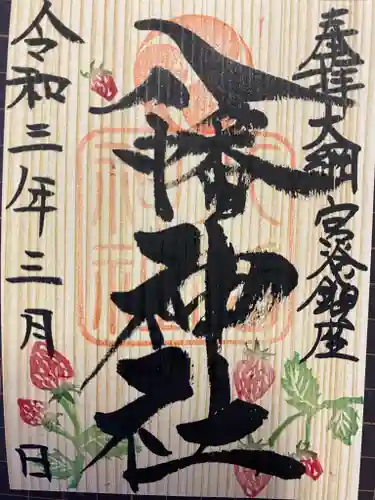 奉拝 大綱 宮谷鎮座
八幡神社
令和三年三月 日